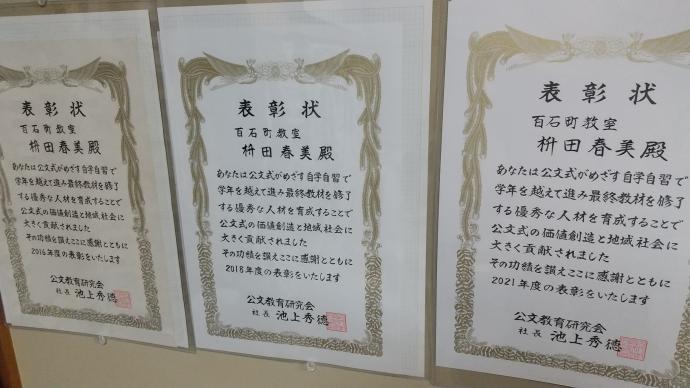 表彰状
百石町教室
枡田春美殿
あなたは公文式がめざす自学自習で
学年を越えて進み最終教材を修了
する優秀な人材を育成することで
公文式の価値創造と地域社会に
大きく貢献されました
その功績を讃えここに感謝とともに
2016年度の表彰をいたします
公文教育研究会
社長 池上秀徳
表彰状
百石町教室
枡田春美殿
あなたは公文式がめざす自学自習で
学年を越えて進み最終教材を修了
する優秀な人材を育成することで
公文式の価値創造と地域社会に
大きく貢献されました
その功績を讃えここに感謝とともに
2018年度の表彰をいたします
公文教育研究会
社長 池上秀徳
表彰状
百石町教室
枡田春美殿
あなたは公文式がめざす自学自習で
学年を越えて進み最終教材を修了
する優秀な人材を育成することで
公文式の価値創造と地域社会に
大きく貢献されました
その功績を讃えここに感謝とともに
2021年度の表彰をいたします
公文教育研究会
社長 池上秀徳